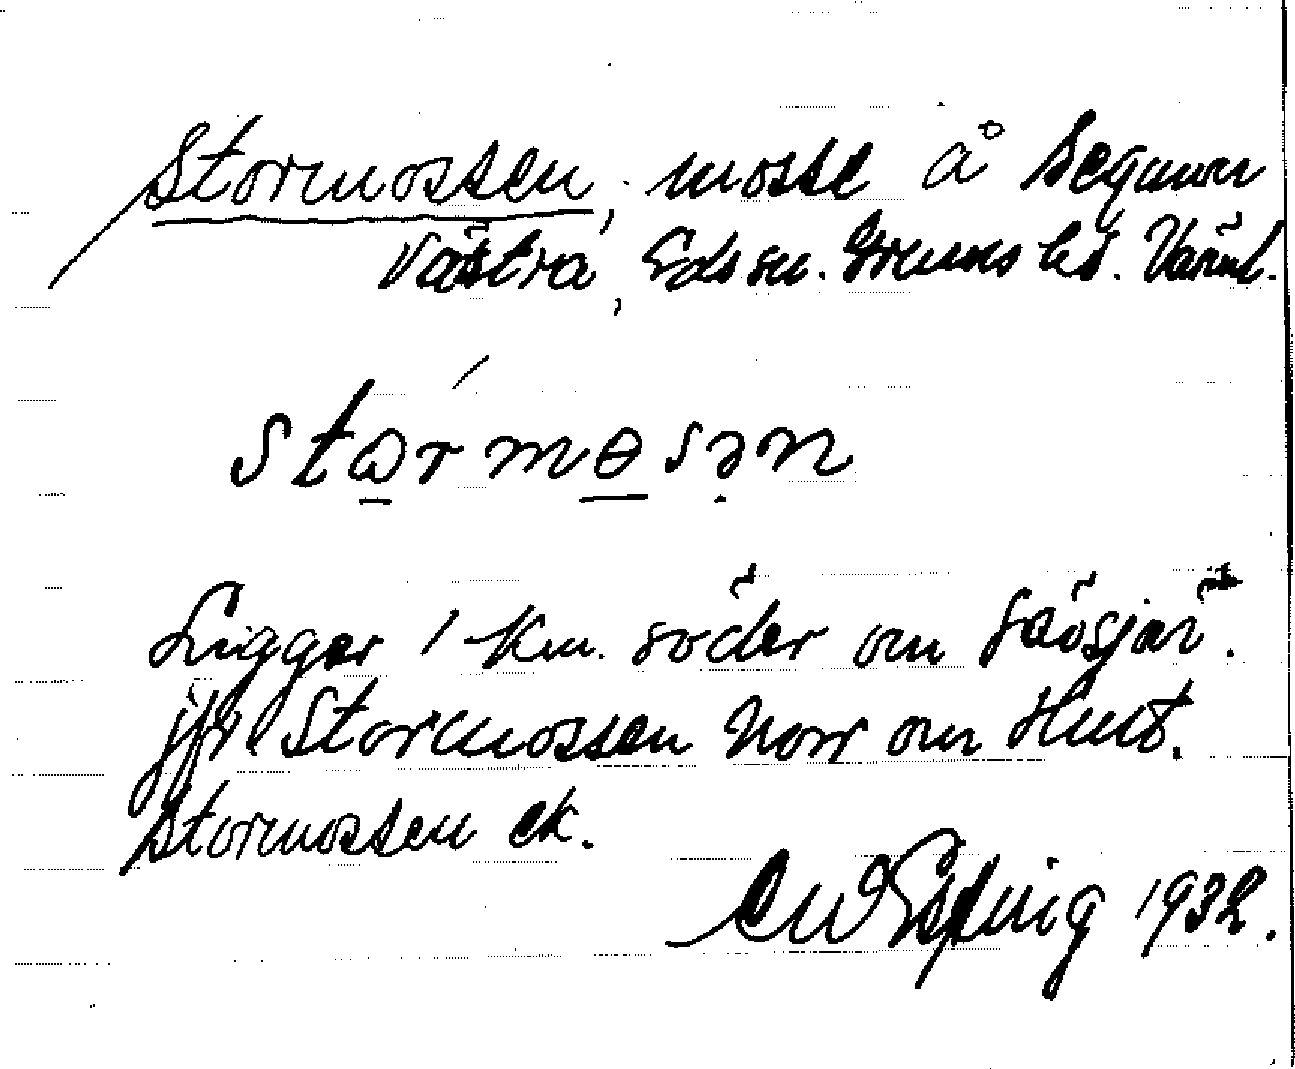 Stormossen, mosse å Segmon
Västra, Eds sn. Grums hd. Värml.
stωrmɵsən
Ligger 1 km. söder om Säösjön.
jfr Stormossen norr om Hult.
Stormossen ek.
C W Esping 1932.